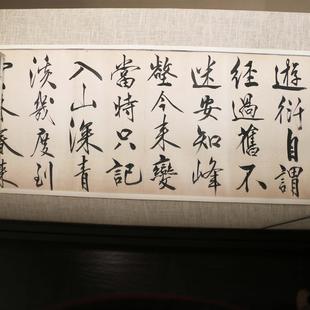 遊衍自謂
經過舊不
迷安知峰
壑今来變
當時只記
入山深青
溪幾度到
林春来